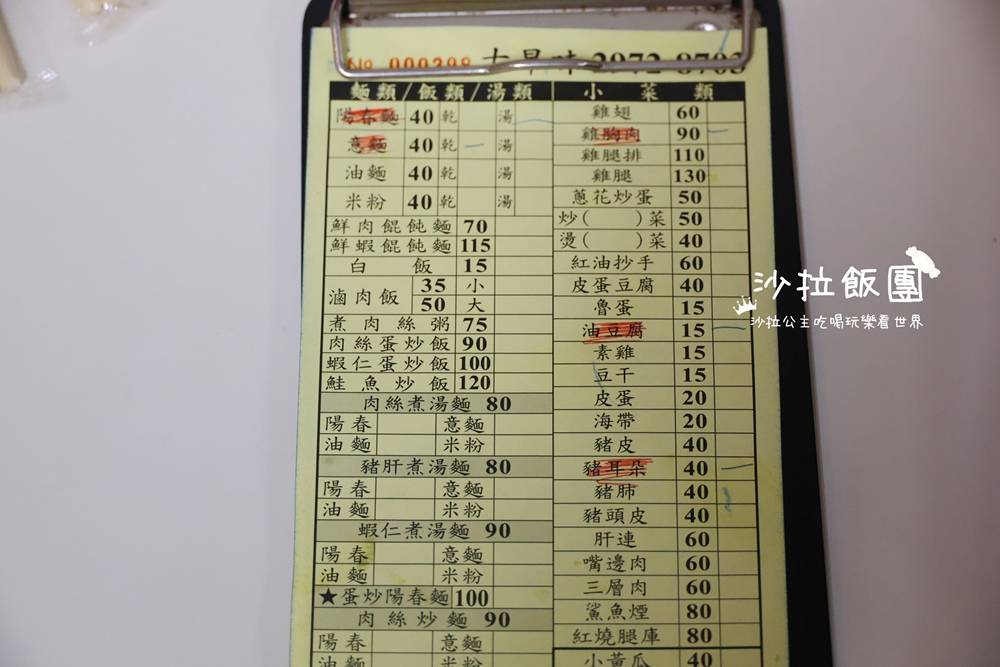 No 000398 古早味 2972-8703
麵類/飯類/湯類
陽春麵 40 乾 湯
意麵 40 乾 湯
油麵 40 乾 湯
米粉 40 乾 湯
鮮肉餛飩麵 70
鮮蝦餛飩麵 115
白飯 15
滷肉飯 35 小
50 大
煮肉絲粥 75
肉絲蛋炒飯 90
蝦仁蛋炒飯 100
鮭魚炒飯 120
肉絲煮湯麵 80
陽春 意麵
油麵 米粉
豬肝煮湯麵 80
陽春 意麵
油麵 米粉
蝦仁煮湯麵 90
陽春 意麵
油麵 米粉
★蛋炒陽春麵 100
肉絲炒麵 90
陽春 意麵
油麵 米粉
小菜類
雞翅 60
雞胸肉 90
雞腿排 110
雞腿 130
蔥花炒蛋 50
炒( )菜 50
燙( )菜 40
紅油抄手 60
皮蛋豆腐 40
魯蛋 15
油豆腐 15
素雞 15
豆干 15
皮蛋 20
海帶 20
豬皮 40
豬耳朵 40
豬肺 40
豬頭皮 40
肝連 60
嘴邊肉 60
三層肉 60
鯊魚煙 80
紅燒腿庫 80
小黃瓜 40
沙拉飯團
沙拉公主吃喝玩樂看世界